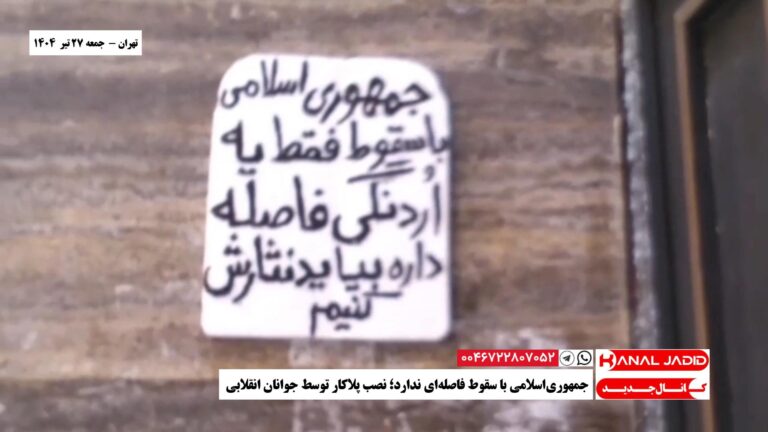 تهران – جمعه ۲۷ تیر ۱۴۰۴
جمهوری اسلامی
با سقوط فقط یه
اُردنگی فاصله
داره بیایدنثارش
کنیم
۰۰۴۶۷۲۲۸۰۷۰۵۲
KANAL JADID
کانال جدید
جمهوری‌اسلامی با سقوط فاصله‌ای ندارد؛ نصب پلاکار توسط جوانان انقلابی